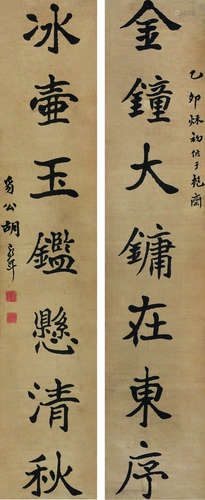 金鐘大鏞在東序
乙卯秌初仿于乾齋
冰壺玉鑑懸清秋
公胡